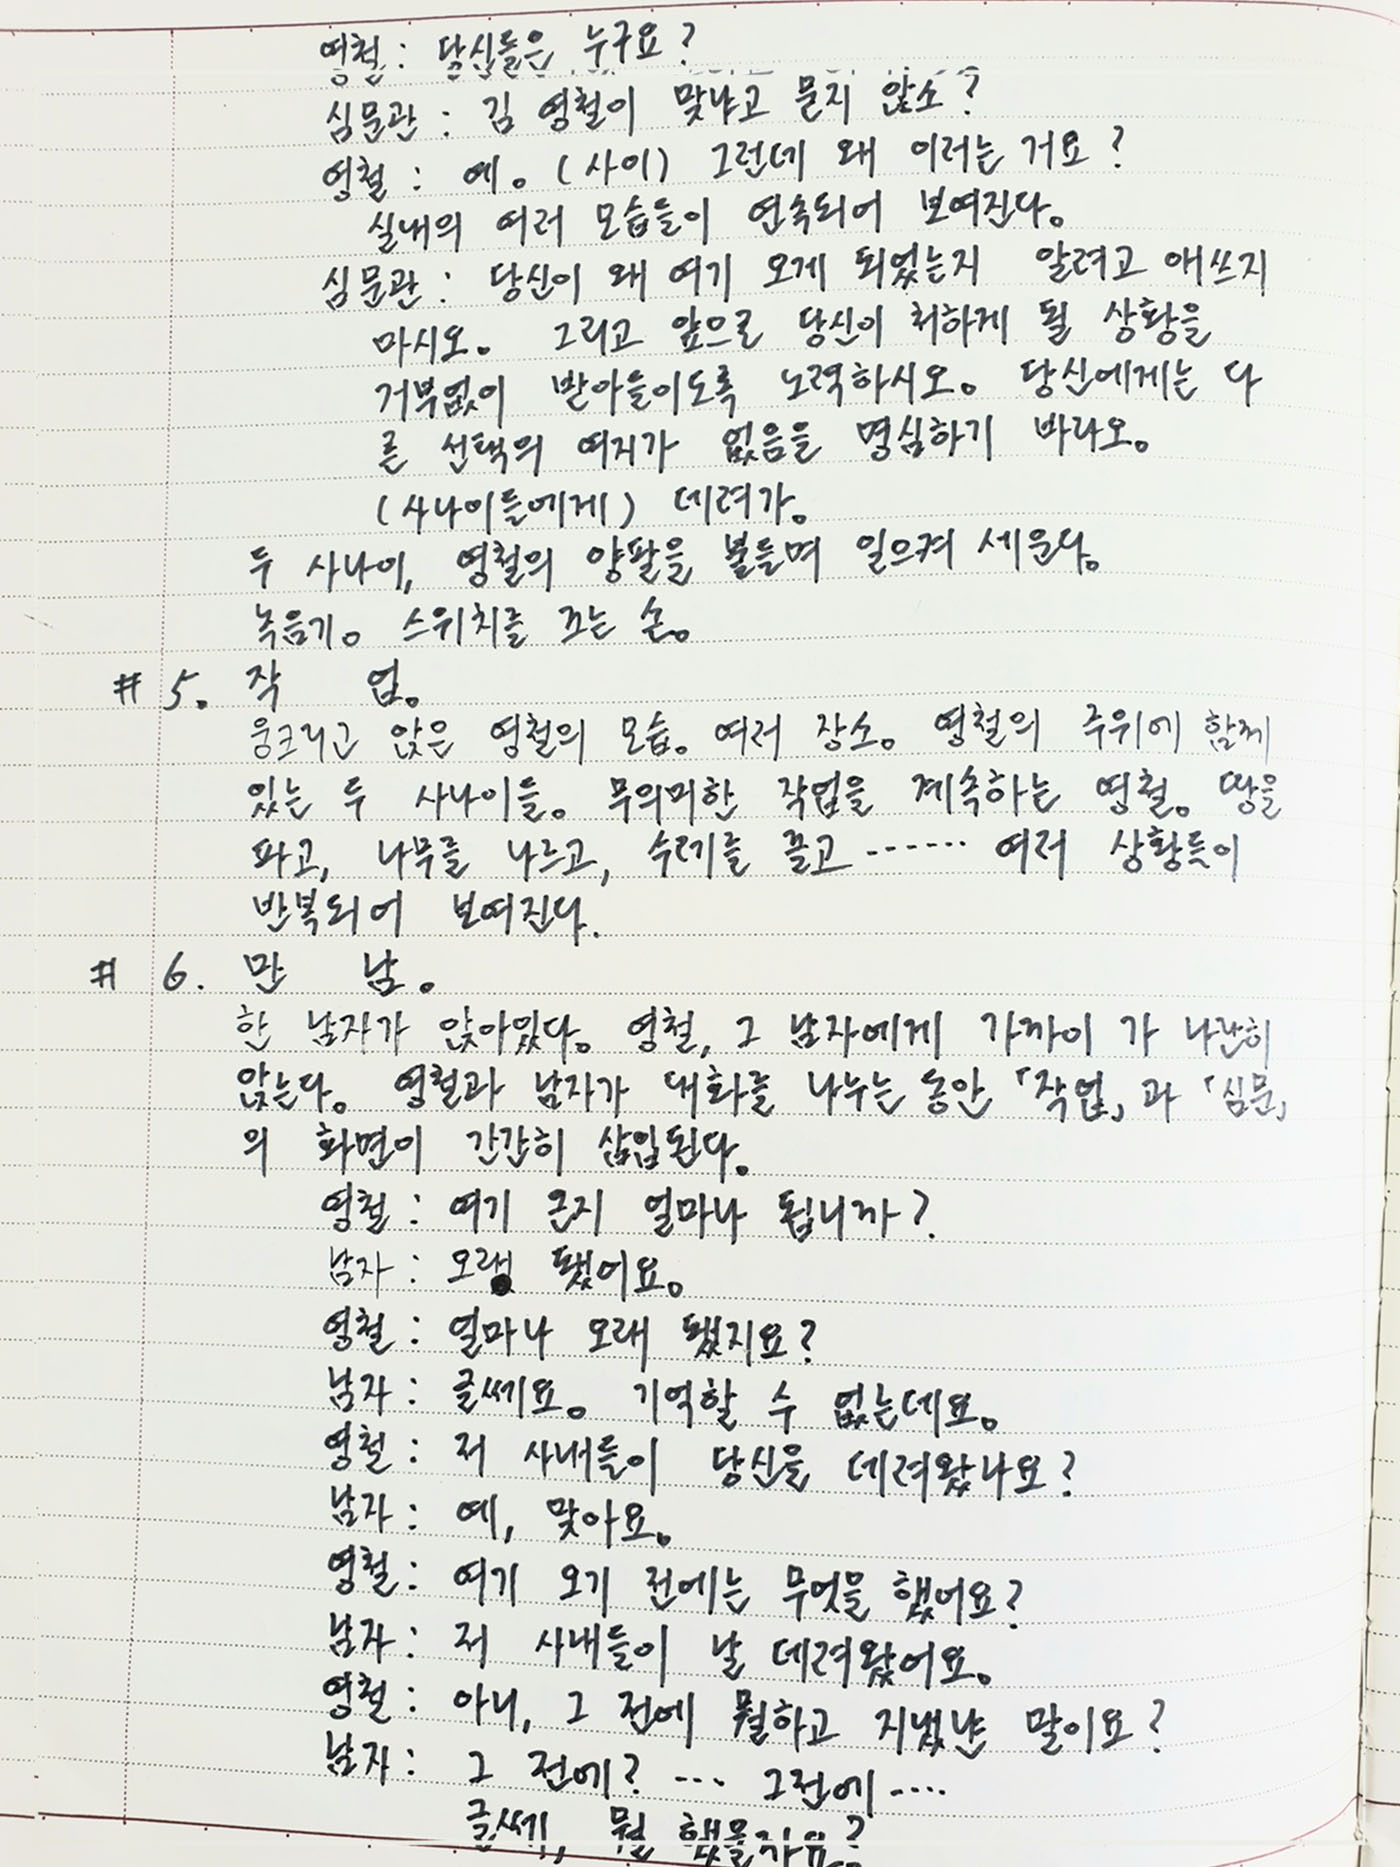 영철 : 당신들은 누구요?
심문관 : 김 영철이 맞냐고 묻지 않소?
영철 : 예。(사이) 그런데 왜 이러는 거요?
실내의 여러 모습들이 연속되어 보여진다。
심문관 : 당신이 왜 여기 오게 되었는지 알려고 애쓰지
마시오。 그리고 앞으로 당신이 처하게 될 상황을
거부없이 받아들이도록 노력하시오。 당신에게는 다
른 선택의 여지가 없음을 명심하기 바라오。
(사나이들에게) 데려가。
두 사나이, 영철의 양팔을 붙들며 일으켜 세운다。
녹음기。 스위치를 끄는 손。
# 5. 작 업。
웅크리고 앉은 영철의 모습。 여러 장소。 영철의 주위에 함께
있는 두 사나이들。 무의미한 작업을 계속하는 영철。 땅을
파고, 나무를 나르고, 수레를 끌고 ……… 여러 상황들이
반복되어 보여진다.
# 6. 만 남。
한 남자가 앉아있다。 영철, 그 남자에게 가까이 가 나란히
앉는다。 영철과 남자가 대화를 나누는 동안 「작업」과 「심문」
의 화면이 간간히 삽입된다。
영철 : 여기 온지 얼마나 됩니까?
남자 : 오래 됐어요。
영철 : 얼마나 오래 됐지요?
남자 : 글쎄요。 기억할 수 없는데요。
영철 : 저 사내들이 당신을 데려왔나요?
남자 : 예, 맞아요。
영철 : 여기 오기 전에는 무엇을 했어요?
남자 : 저 사내들이 날 데려왔어요。
영철 : 아니, 그 전에 뭘하고 지냈냔 말이요?
남자 : 그 전에? … 그전에 ….
글쎄, 뭘 했을까요?